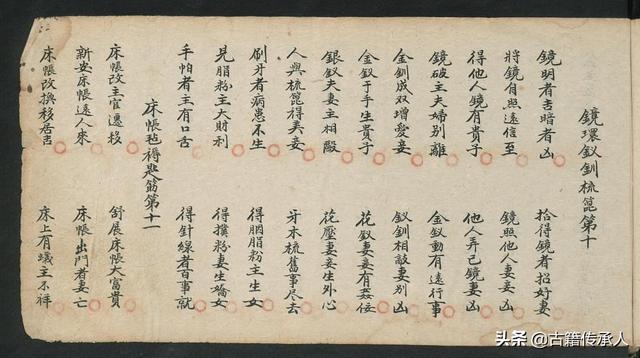 鏡環釵釧梳篦第十
鏡明者吉暗者凶 拾得鏡者招好妻
將鏡自照遠信至 鏡照他人妻妾凶
得他人鏡有貴子 他人弄己鏡妻凶
鏡破主夫婦別離 金釵動有遠行事
金釧成双增愛妾 釵釧相敲妻別凶
金釵于手生貴子 花釵妻妾有姦佞
銀釵夫妻主相毆 花壓妻妾生外心
人與梳篦得美妾 牙木梳舊事尽去
刷牙者病患不生 得胭脂粉主生女
見脂粉主大財利 得撲粉妻生嬌女
手帕者主有口舌 得針線者百事就
床帳毡褥匙筯第十一
床帳改主官遷移 舒展床帳大富貴
新安床帳遠人來 床帳出門者妻亡
床帳改換移居吉 床上有蟻主不祥
头条 @古籍传承人